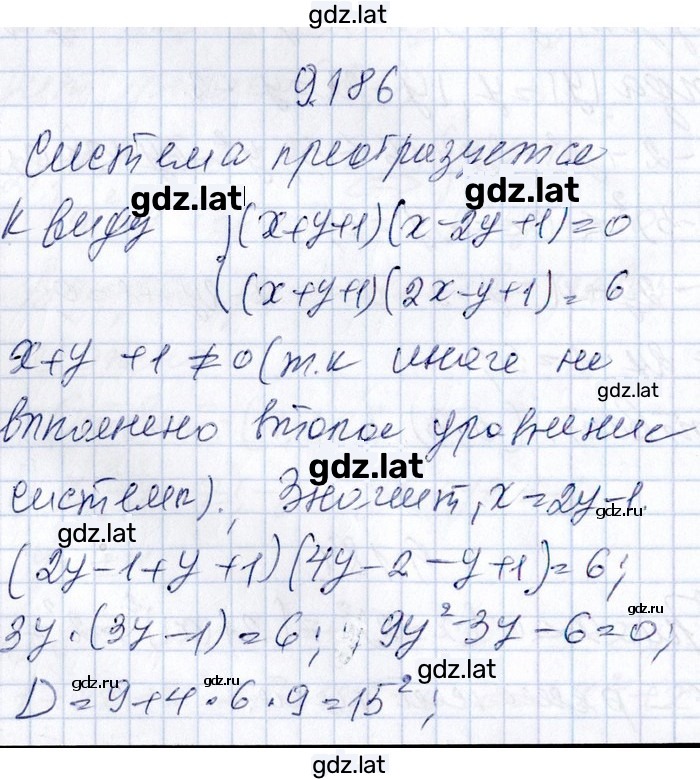 gdz.lat
9.186
Система преобразуется
gdz.lat gdz.lat
к виду { (x+y+1)(x-2y+1)=0
(x+y+1)(2x-y+1)=6
x+y+1≠0 (т.к иначе не
gdz.lat
выполнено второе уравнение
gdz.lat
системы). Значит, x=2y-1.
gdz.lat
gdz.lat
(2y-1+y+1)(4y-2-y+1)=6;
gdz.lat
3y·(3y-1)=6; ; 9y²-3y-6=0;
gdz.lat
gdz.lat gdz.lat
D=9+4·6·9=15²;
gdz.lat